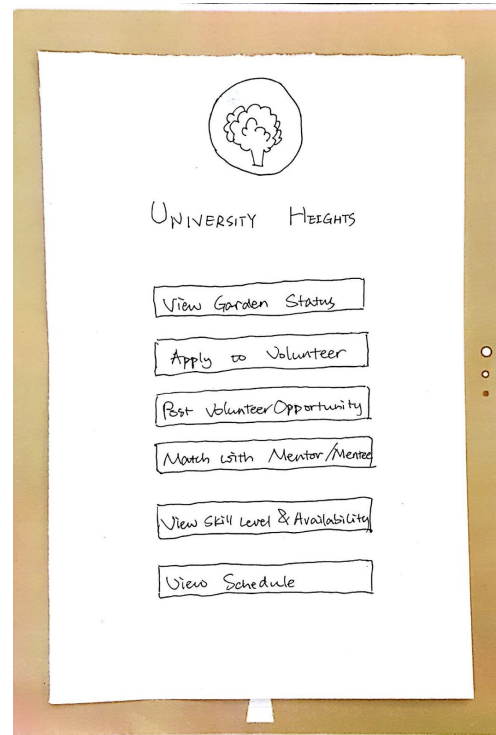 UNIVERSITY HEIGHTS
View Garden Status
Apply to Volunteer
Post Volunteer Opportunity
Match with Mentor/Mentee
View Skill Level & Availability
View Schedule